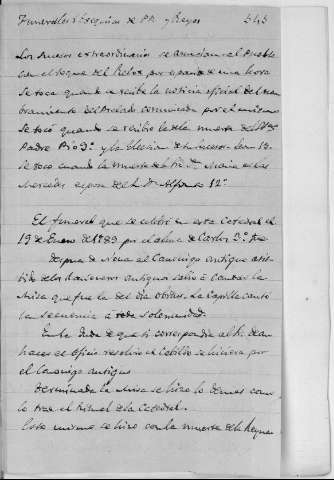 Funerales i Exequias de PP. y Reyes 545
Los sucesos extraordinarios se anuncian al Pueblo
con el toque del Reloz por espacio de una hora
Se toca quando se recibe la noticia oficial del nom
bramiento del Prelado comunicada por el mismo
Se tocó quando se recibio la de la muerte del Smo
Padre Pio 9º y la eleccion de su sucesor Leon 13.
Se tocó cuando la muerte de la Rª Dª Maria de las
Mercedes esposa del R. Dn Alfonso 12º
El funeral que se celebró en esta Catedral el
19 de Enero de 1789 por el alma de Carlos 3º fue
despues de nona el Canonigo antiguo asis
tido de los Racioneros antiguos salio á Cantar la
Misa que fue la del dia obitus. La Capilla cantó
la secuencia á toda solemnidad.
En la duda de que si correspondia al Sr. Dean
hacer el oficio resolvio el Cabildo se hiciera por
el Canonigo antiguo
Terminada la misa se hizo lo demas como
lo trae el Ritual de la Catedral.
Esto mismo se hizo con la muerte de la Reyna